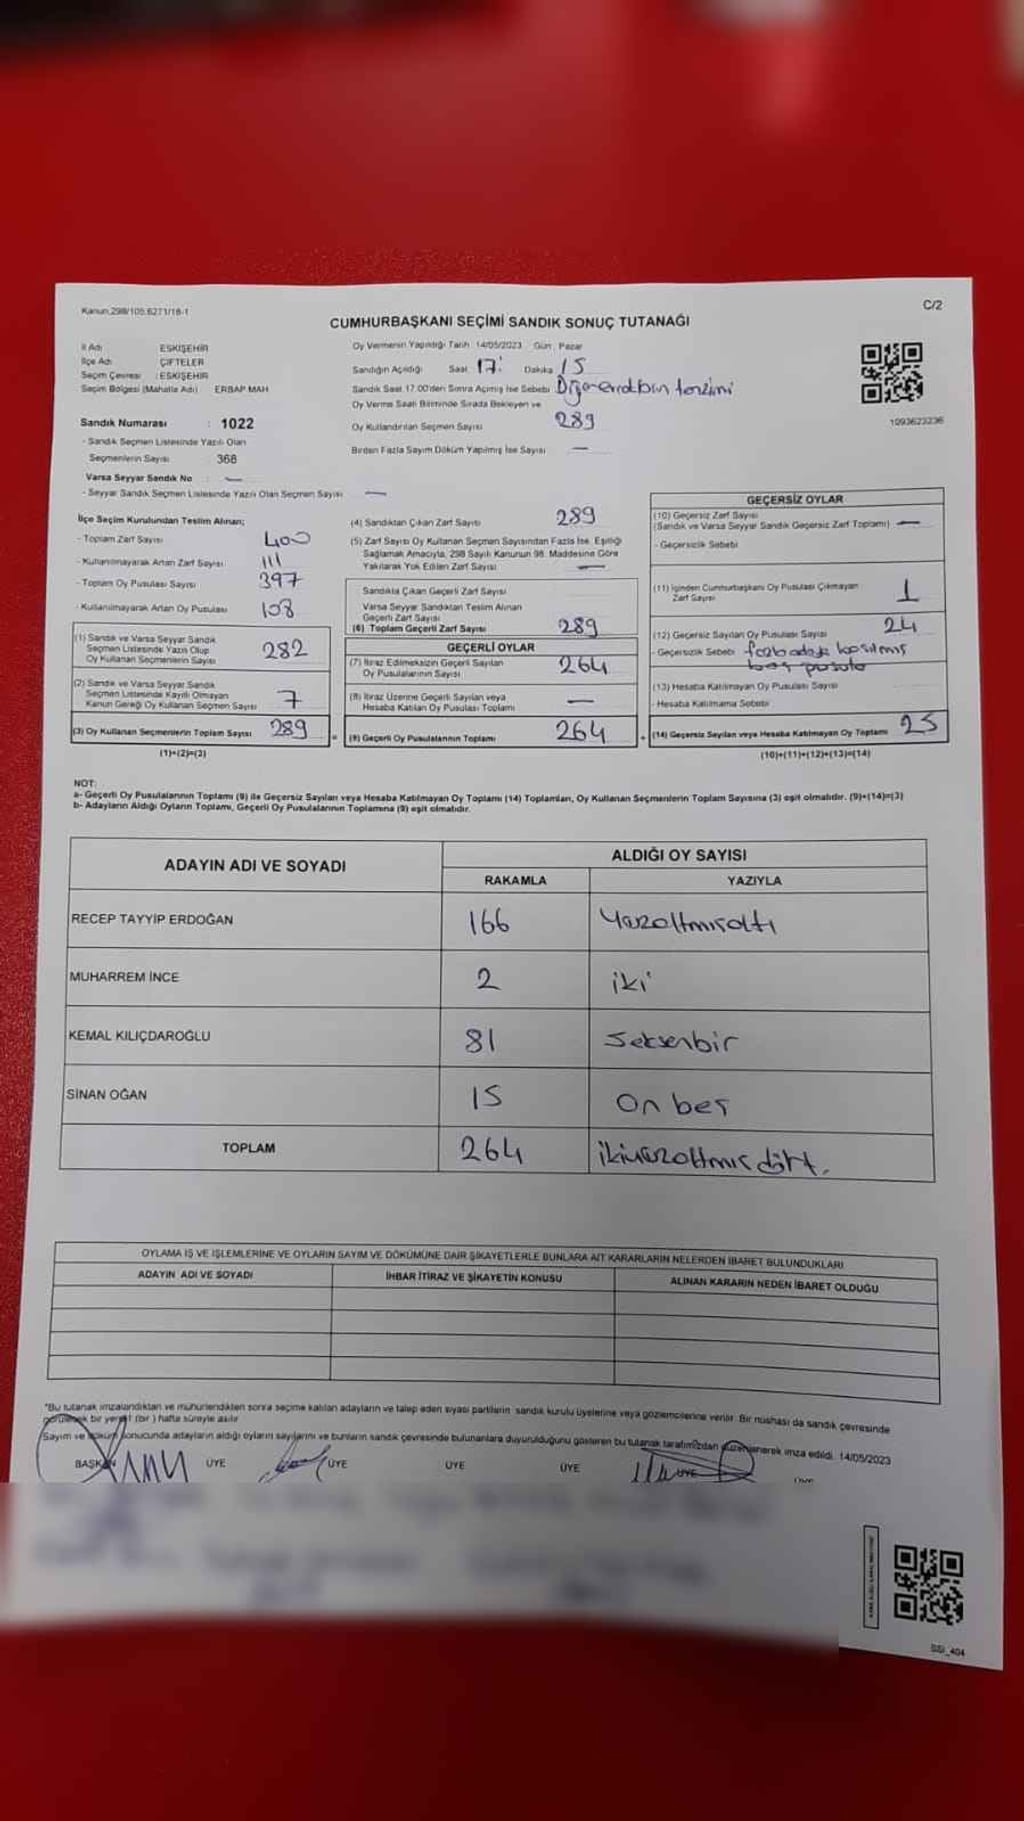 Kanun.298/105.6271/18-1
C/2
CUMHURBAŞKANI SEÇİMİ SANDIK SONUÇ TUTANAĞI
İl Adı : ESKİŞEHİR
İlçe Adı : ÇİFTELER
Seçim Çevresi : ESKİŞEHİR
Seçim Bölgesi (Mahalle Adı) : ERBAP MAH
Sandık Numarası : 1022
- Sandık Seçmen Listesinde Yazılı Olan
Seçmenlerin Sayısı 368
Varsa Seyyar Sandık No : —
- Seyyar Sandık Seçmen Listesinde Yazılı Olan Seçmen Sayısı —
Oy Vermenin Yapıldığı Tarih 14/05/2023 Gün : Pazar
Sandığın Açıldığı Saat 17 Dakika 15
Sandık Saat 17.00'den Sonra Açılmış İse Sebebi
Oy Verme Saati Bitiminde Sırada Bekleyen ve
Oy Kullandırılan Seçmen Sayısı 289
Birden Fazla Sayım Döküm Yapılmış İse Sayısı —
1093623236
İlçe Seçim Kurulundan Teslim Alınan;
- Toplam Zarf Sayısı 400
- Kullanılmayarak Artan Zarf Sayısı 111
- Toplam Oy Pusulası Sayısı 397
- Kullanılmayarak Artan Oy Pusulası 108
(1) Sandık ve Varsa Seyyar Sandık
Seçmen Listesinde Yazılı Olup
Oy Kullanan Seçmenlerin Sayısı 282
(2) Sandık ve Varsa Seyyar Sandık
Seçmen Listesinde Kayıtlı Olmayan
Kanun Gereği Oy Kullanan Seçmen Sayısı 7
(3) Oy Kullanan Seçmenlerin Toplam Sayısı 289
(1)+(2)=(3)
(4) Sandıktan Çıkan Zarf Sayısı 289
(5) Zarf Sayısı Oy Kullanan Seçmen Sayısından Fazla İse, Eşitliği
Sağlamak Amacıyla, 298 Sayılı Kanunun 98. Maddesine Göre
Yakılarak Yok Edilen Zarf Sayısı —
Sandıkta Çıkan Geçerli Zarf Sayısı
Varsa Seyyar Sandıktan Teslim Alınan
Geçerli Zarf Sayısı
(6) Toplam Geçerli Zarf Sayısı 289
GEÇERLİ OYLAR
(7) İtiraz Edilmeksizin Geçerli Sayılan
Oy Pusulalarının Sayısı 264
(8) İtiraz Üzerine Geçerli Sayılan veya
Hesaba Katılan Oy Pusulası Toplamı —
(9) Geçerli Oy Pusulalarının Toplamı 264
GEÇERSİZ OYLAR
(10) Geçersiz Zarf Sayısı
(Sandık ve Varsa Seyyar Sandık Geçersiz Zarf Toplamı) —
- Geçersizlik Sebebi
(11) İçinden Cumhurbaşkanı Oy Pusulası Çıkmayan
Zarf Sayısı 1
(12) Geçersiz Sayılan Oy Pusulası Sayısı 24
- Geçersizlik Sebebi fazla adaya basılmış
boş pusula
(13) Hesaba Katılmayan Oy Pusulası Sayısı
- Hesaba Katılmama Sebebi
(14) Geçersiz Sayılan veya Hesaba Katılmayan Oy Toplamı 25
(10)+(11)+(12)+(13)=(14)
NOT:
a- Geçerli Oy Pusulalarının Toplamı (9) ile Geçersiz Sayılan veya Hesaba Katılmayan Oy Toplamı (14) Toplamları, Oy Kullanan Seçmenlerin Toplam Sayısına (3) eşit olmalıdır. (9)+(14)=(3)
b- Adayların Aldığı Oyların Toplamı, Geçerli Oy Pusulalarının Toplamına (9) eşit olmalıdır.
ADAYIN ADI VE SOYADI
ALDIĞI OY SAYISI
RAKAMLA YAZIYLA
RECEP TAYYİP ERDOĞAN 166 Yüzaltmışaltı
MUHARREM İNCE 2 iki
KEMAL KILIÇDAROĞLU 81 Seksenbir
SİNAN OĞAN 15 On beş
TOPLAM 264 ikiyüzaltmış dört.
OYLAMA İŞ VE İŞLEMLERİNE VE OYLARIN SAYIM VE DÖKÜMÜNE DAİR ŞİKAYETLERLE BUNLARA AİT KARARLARIN NELERDEN İBARET BULUNDUKLARI
ADAYIN ADI VE SOYADI İHBAR İTİRAZ VE ŞİKAYETİN KONUSU ALINAN KARARIN NEDEN İBARET OLDUĞU
*Bu tutanak imzalandıktan ve mühürlendikten sonra seçime katılan adayların ve talep eden siyasi partilerin sandık kurulu üyelerine veya gözlemcilerine verilir. Bir nüshası da sandık çevresinde
görülecek bir yere 1 (bir ) hafta süreyle asılır
Sayım ve döküm sonucunda adayların aldığı oyların sayılarını ve bunların sandık çevresinde bulunanlara duyurulduğunu gösteren bu tutanak tarafımızdan düzenlenerek imza edildi. 14/05/2023
BAŞKAN ÜYE ÜYE ÜYE ÜYE ÜYE ÜYE
SSI_404